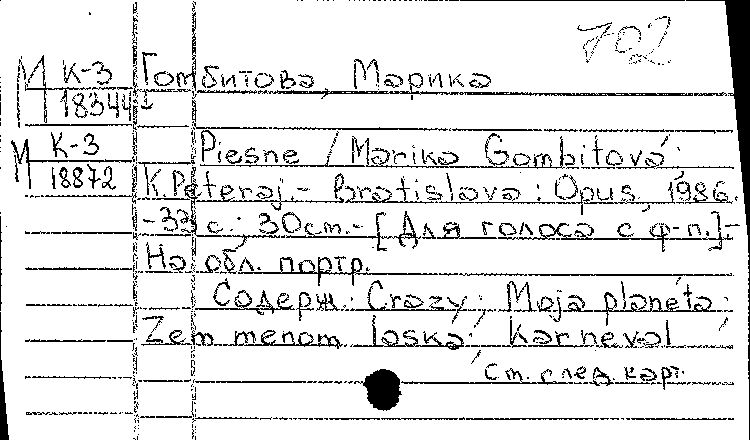 702
М К-3 Гомбитова, Марика
18344
М К-3 Piesne / Marika Gombitová;
18872 K. Peteraj. - Bratislava : Opus, 1986.
- 33 с.; 30 cm. - [Для голоса с ф-п.] -
На обл. портр.
Содерж.: Crazy; Moja planéta:
Zem menom láska; Karneval
См. след. карт.